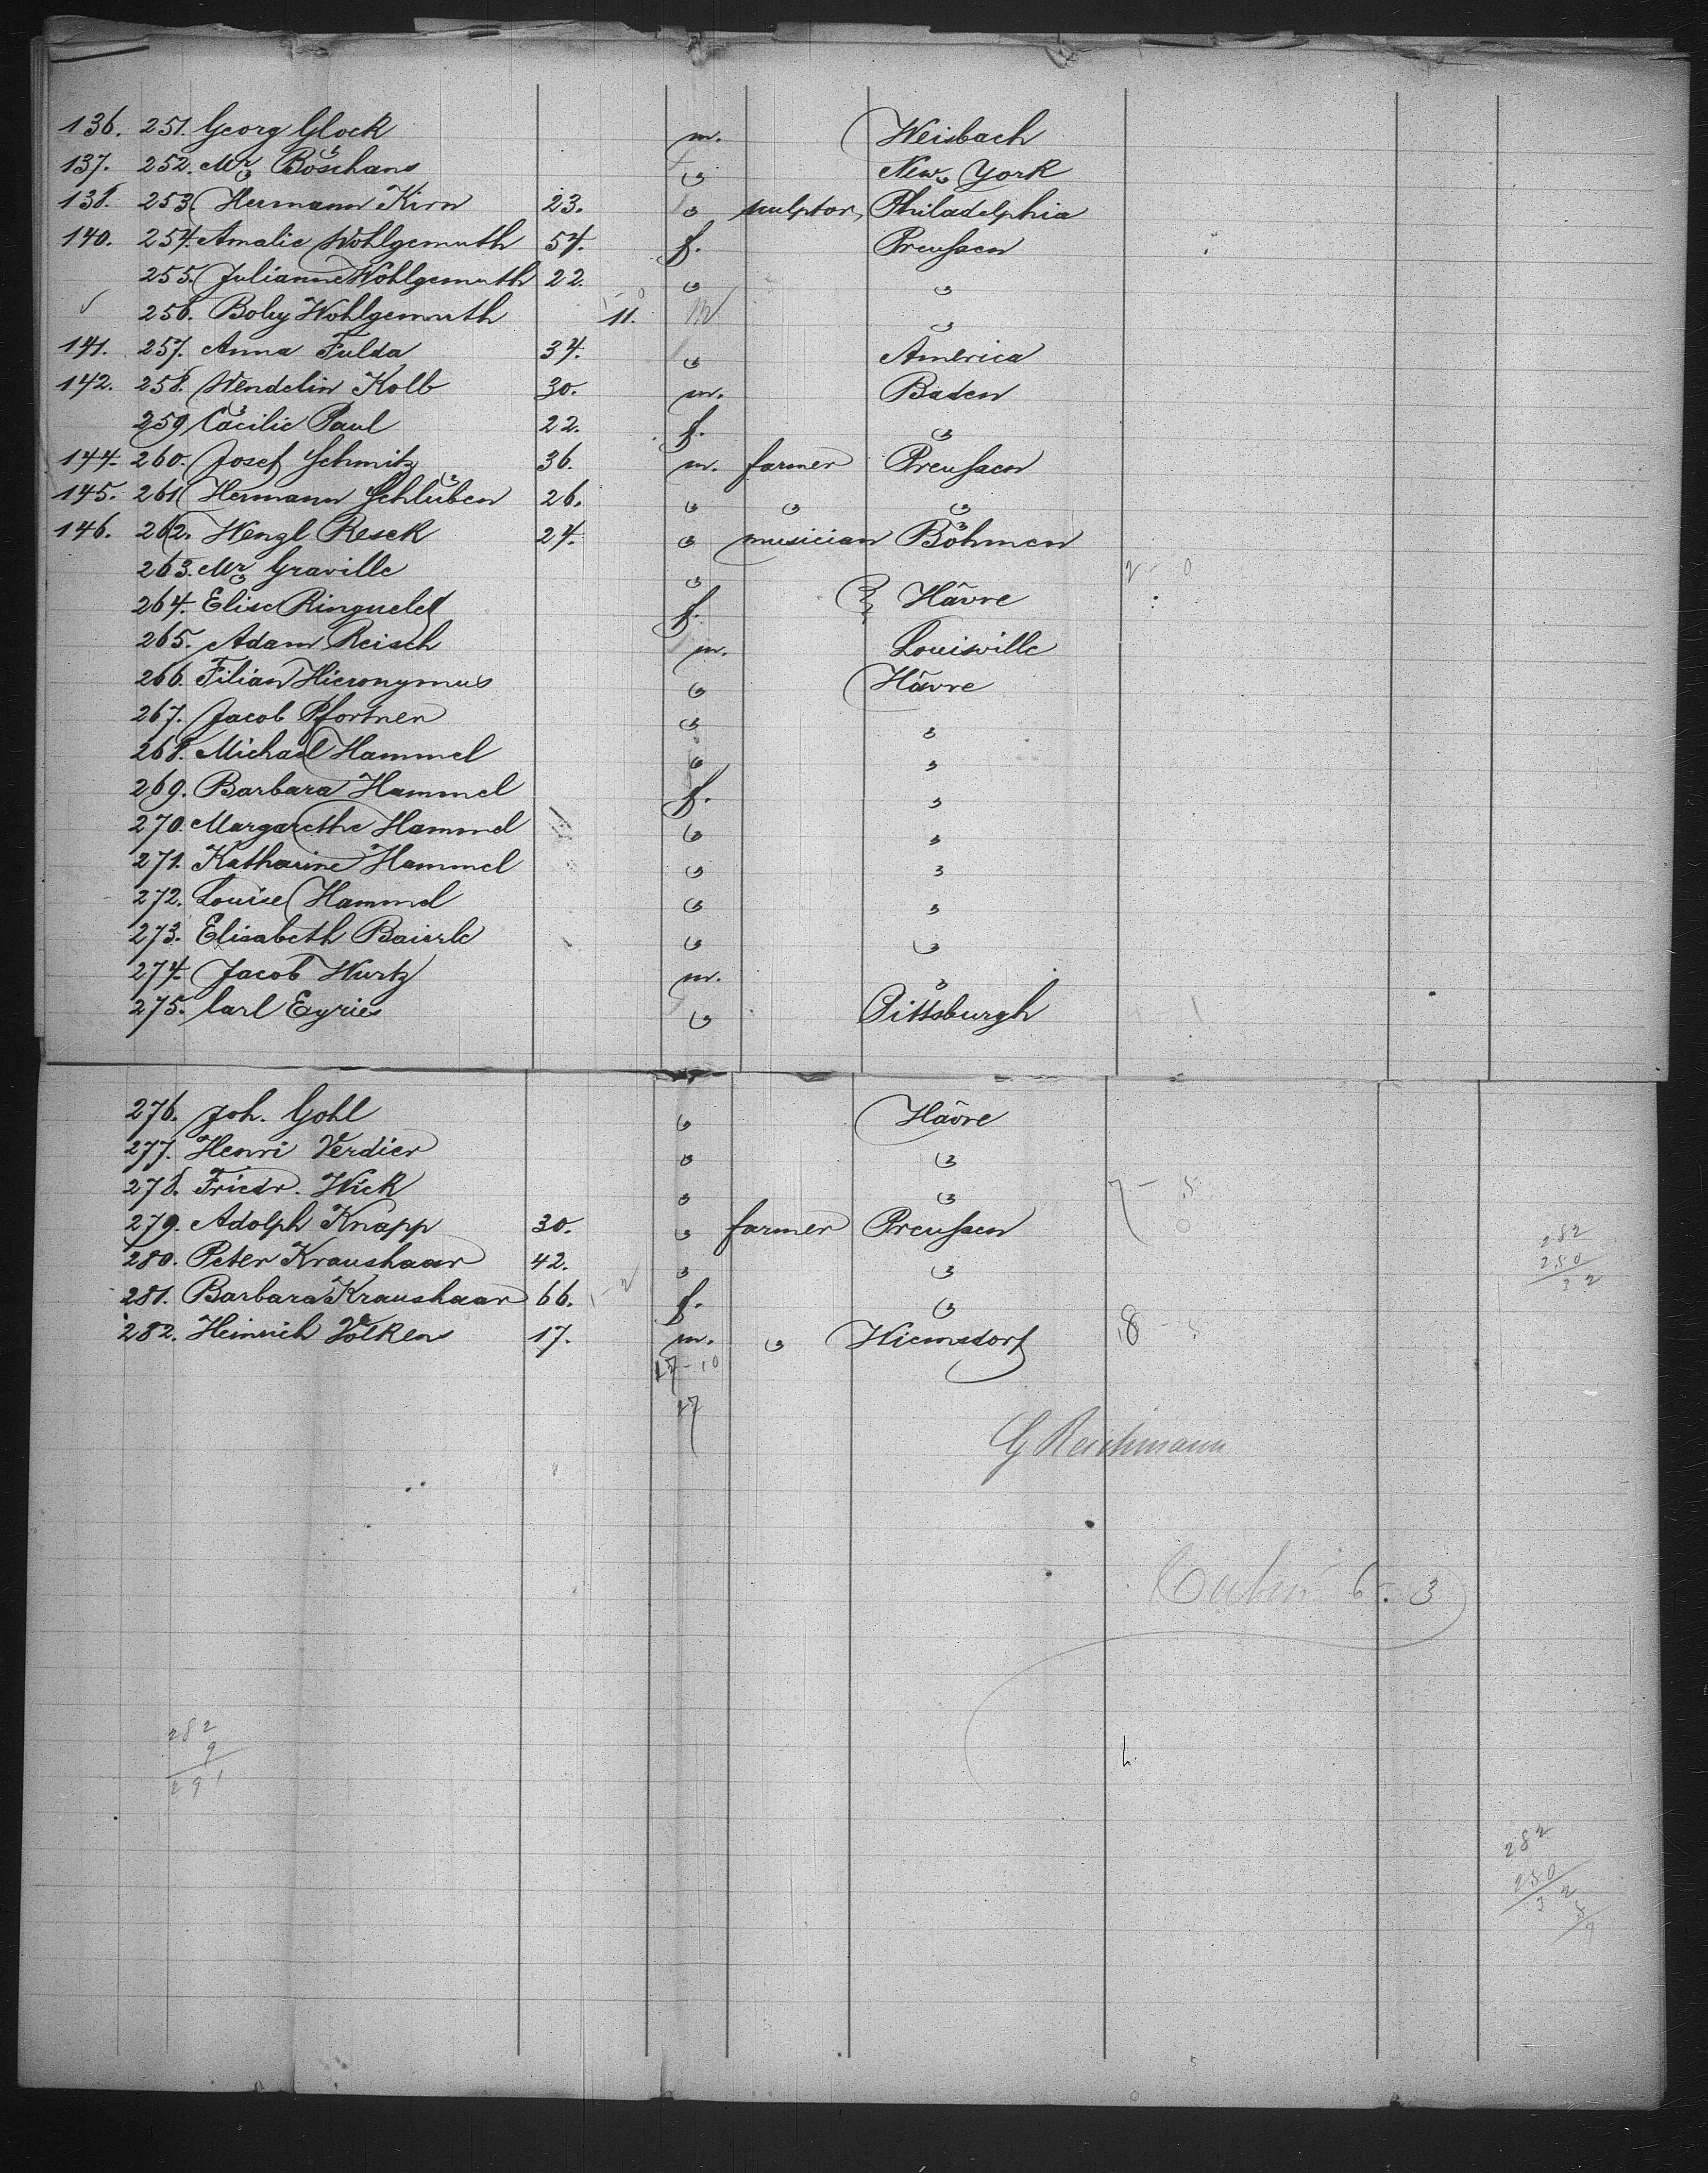 136. 251. Georg Glock m. Weisbach
137. 252. Mr. Böschans " New York
138. 253. Hermann Kirn 23. " sculptor, Philadelphia
140. 254. Amalie Wohlgemuth 54. f. Preußen
255. Julianne Wohlgemuth 22. " "
256. Boley Wohlgemuth 11. m "
141. 257. Anna Fulda 34. " America
142. 258. Wendelin Kolb 30. m. Baden
259. Cäcilie Paul 22. f. "
144. 260. Josef Schmitz 36. m. farmer Preußen
145. 261. Hermann Schlüben 26. " " "
146. 262. Wenzl Resek 24. " musician Böhmen
263. Mr. Graville " 2 - 0
264. Elise Ringuelet f. Hâvre
265. Adam Reisch m. Louisville
266. Filian Hieronymus " Hâvre
267. Jacob Pfortner " "
268. Michael Hammel " "
269. Barbara Hammel f. "
270. Margarethe Hammel " "
271. Katharine Hammel " "
272. Louise Hammel " "
273. Elisabeth Baierle " "
274. Jacob Wurtz m. "
275. Carl Eyries " Pittsburgh
276. Joh. Gohl " Hâvre
277. Henri Verdier " "
278. Friedr. Wick " "
279. Adolph Knapp 30. " farmer Preußen
280. Peter Kraushaar 42. " "
281. Barbara Kraushaar 66. f. "
282. Heinrich Volkens 17. m. " Wiemsdorf
282
250
32
17 - 10
27
G Reichmann
6. 3
282
9
291
282
250
32